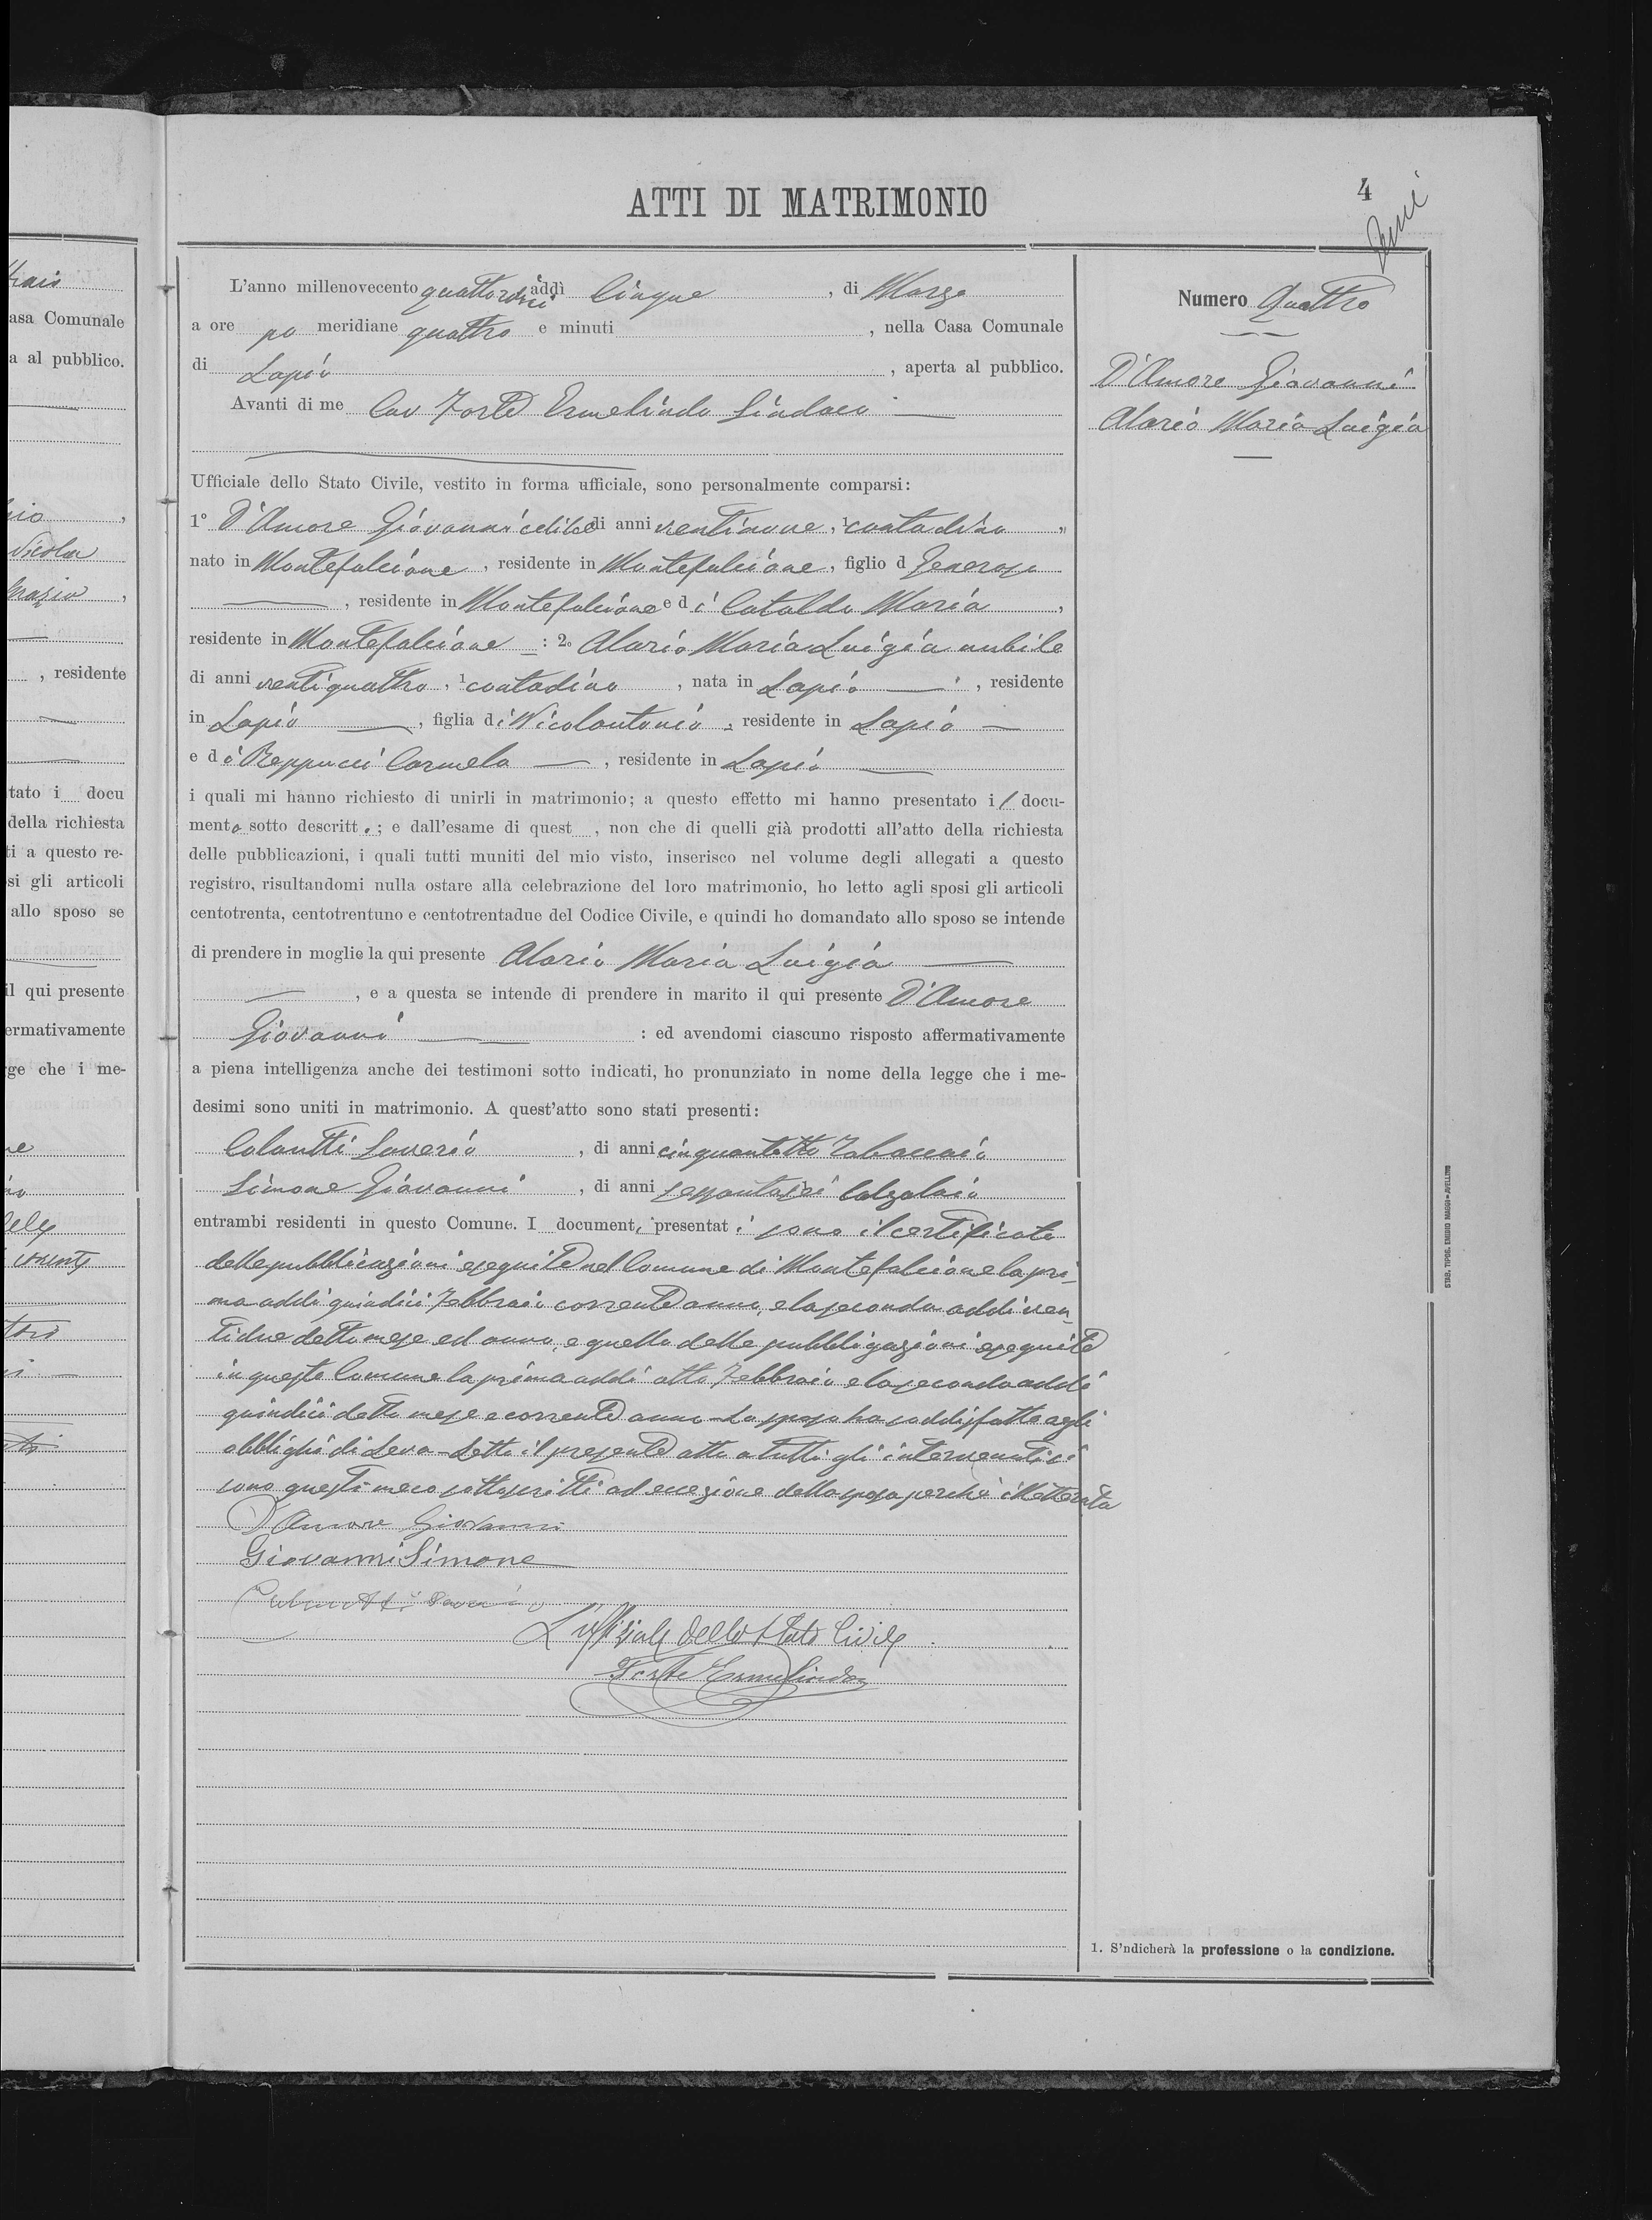 trais
asa Comunale
a al pubblico.
Nicola
, residente
tato i docu
della richiesta
ti a questo re-
si gli articoli
allo sposo se
il qui presente
fermativamente
gge che i me-
ATTI DI MATRIMONIO
4
L'anno millenovecento quattordici addì Cinque , di Marzo
a ore po meridiane quattro e minuti , nella Casa Comunale
di Lapio , aperta al pubblico.
Avanti di me Cav Forte Ermelindo Sindaco
Ufficiale dello Stato Civile, vestito in forma ufficiale, sono personalmente comparsi:
1° D'Amore Giovanni celibe di anni ventinove, 1 contadino ,
nato in Montefalcione , residente in Montefalcione, figlio d Generoso
, residente in Montefalcione e di Cataldo Maria ,
residente in Montefalcione : 2° Alario Maria Luigia nubile
di anni ventiquattro, 1 contadina , nata in Lapio , residente
in Lapio , figlia di Nicolantonio , residente in Lapio
e di Reppucci Carmela , residente in Lapio
i quali mi hanno richiesto di unirli in matrimonio; a questo effetto mi hanno presentato il docu-
mento sotto descritt. ; e dall'esame di quest , non che di quelli già prodotti all'atto della richiesta
delle pubblicazioni, i quali tutti muniti del mio visto, inserisco nel volume degli allegati a questo
registro, risultandomi nulla ostare alla celebrazione del loro matrimonio, ho letto agli sposi gli articoli
centotrenta, centotrentuno e centotrentadue del Codice Civile, e quindi ho domandato allo sposo se intende
di prendere in moglie la qui presente Alario Maria Luigia
, e a questa se intende di prendere in marito il qui presente D'Amore
Giovanni : ed avendomi ciascuno risposto affermativamente
a piena intelligenza anche dei testimoni sotto indicati, ho pronunziato in nome della legge che i me-
desimi sono uniti in matrimonio. A quest'atto sono stati presenti:
Colantti Saverio , di anni cinquantotto Tabaccaio
Simone Giovanni , di anni sessantasei Calzolaio
entrambi residenti in questo Comune. I documenti presentati sono il certificato
delle pubblicazioni eseguite nel Comune di Montefalcione la pri-
ma addì quindici Febbraio corrente anno, e la seconda addì ven-
tidue detto mese ed anno, e quello delle pubbligazioni eseguite
in questo Comune la prima addì otto Febbraio e la seconda addì
quindici detto mese e corrente anno - Lo sposo ha soddisfatto agli
obblighi di Leva - Letto il presente atto a tutti gli intervenuti si
sono questi meco sottoscritti ad eccezione della sposa perché illetterata
D'Amore Giovanni
Giovanni Simone
Colantti Saverio
L'uffiziale dello Stato Civile
Forte Ermelindo
Numero Quattro
D'Amore Giovanni
Alario Maria Luigia
1. S'ndicherà la professione o la condizione.
STAB. TIPOG. EMIDIO MAGGI - AVELLINO